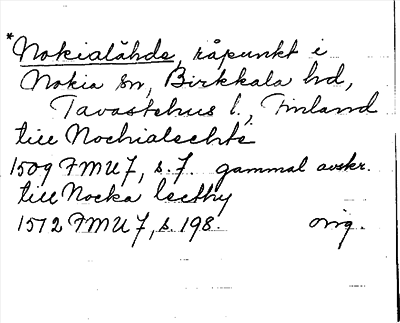 *Nokialähde, råpunkt i
Nokia sn, Birkkala hd,
Tavastehus l., Finland
till Nochialechte
1509 FMU 7, s. 7. gammal avskr.
till Nocka lecthy
1512 FMU 7, s. 198. orig.